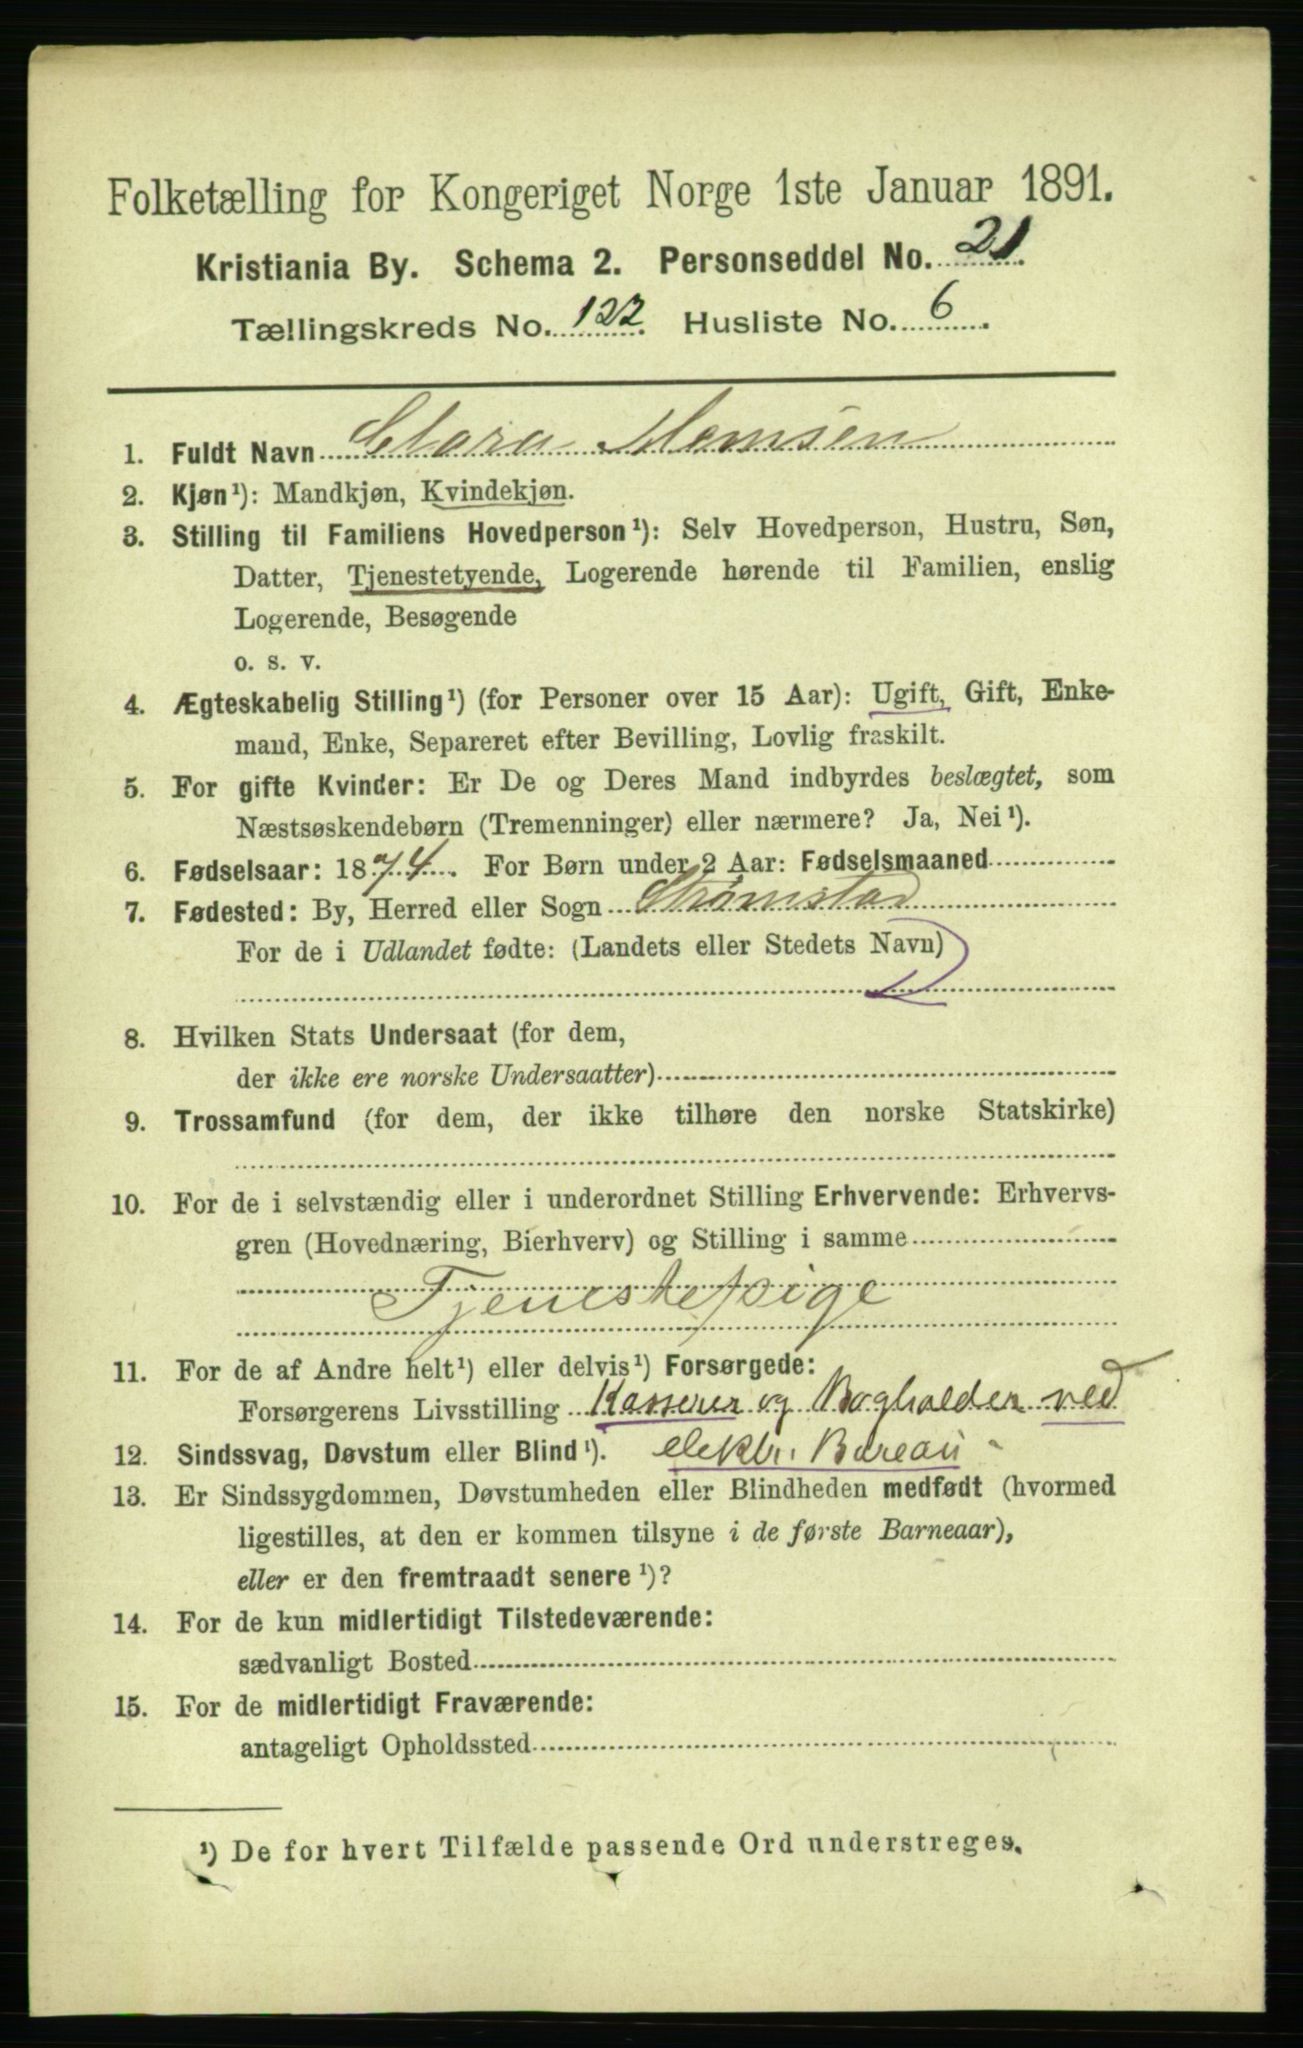 Folketælling for Kongeriget Norge 1ste Januar 1891.
Kristiania By. Schema 2. Personseddel No. 21.
Tællingskreds No. 122. Husliste No. 6.
1. Fuldt Navn Clara Memsen
2. Kjøn¹): Mandkjøn, Kvindekjøn.
3. Stilling til Familiens Hovedperson¹): Selv Hovedperson, Hustru, Søn,
Datter, Tjenestetyende, Logerende hørende til Familien, enslig
Logerende, Besøgende
o. s. v.
4. Ægteskabelig Stilling¹) (for Personer over 15 Aar): Ugift, Gift, Enke-
mand, Enke, Separeret efter Bevilling, Lovlig fraskilt.
5. For gifte Kvinder: Er De og Deres Mand indbyrdes beslægtet, som
Næstsøskendebørn (Tremenninger) eller nærmere? Ja, Nei¹).
6. Fødselsaar: 1874. For Børn under 2 Aar: Fødselsmaaned
7. Fødested: By, Herred eller Sogn Strømstad
For de i Udlandet fødte: (Landets eller Stedets Navn)
8. Hvilken Stats Undersaat (for dem,
der ikke ere norske Undersaatter)
9. Trossamfund (for dem, der ikke tilhøre den norske Statskirke)
10. For de i selvstændig eller i underordnet Stilling Erhvervende: Erhvervs-
gren (Hovednæring, Bierhverv) og Stilling i samme
Tjenestepige
11. For de af Andre helt¹) eller delvis¹) Forsørgede:
Forsørgerens Livsstilling Kasserer og Bogholder ved
12. Sindssvag, Døvstum eller Blind¹). elektr. Bureau
13. Er Sindssygdommen, Døvstumheden eller Blindheden medfødt (hvormed
ligestilles, at den er kommen tilsyne i de første Barneaar),
eller er den fremtraadt senere¹)?
14. For de kun midlertidigt Tilstedeværende:
sædvanligt Bosted
15. For de midlertidigt Fraværende:
antageligt Opholdssted
¹) De for hvert Tilfælde passende Ord understreges.